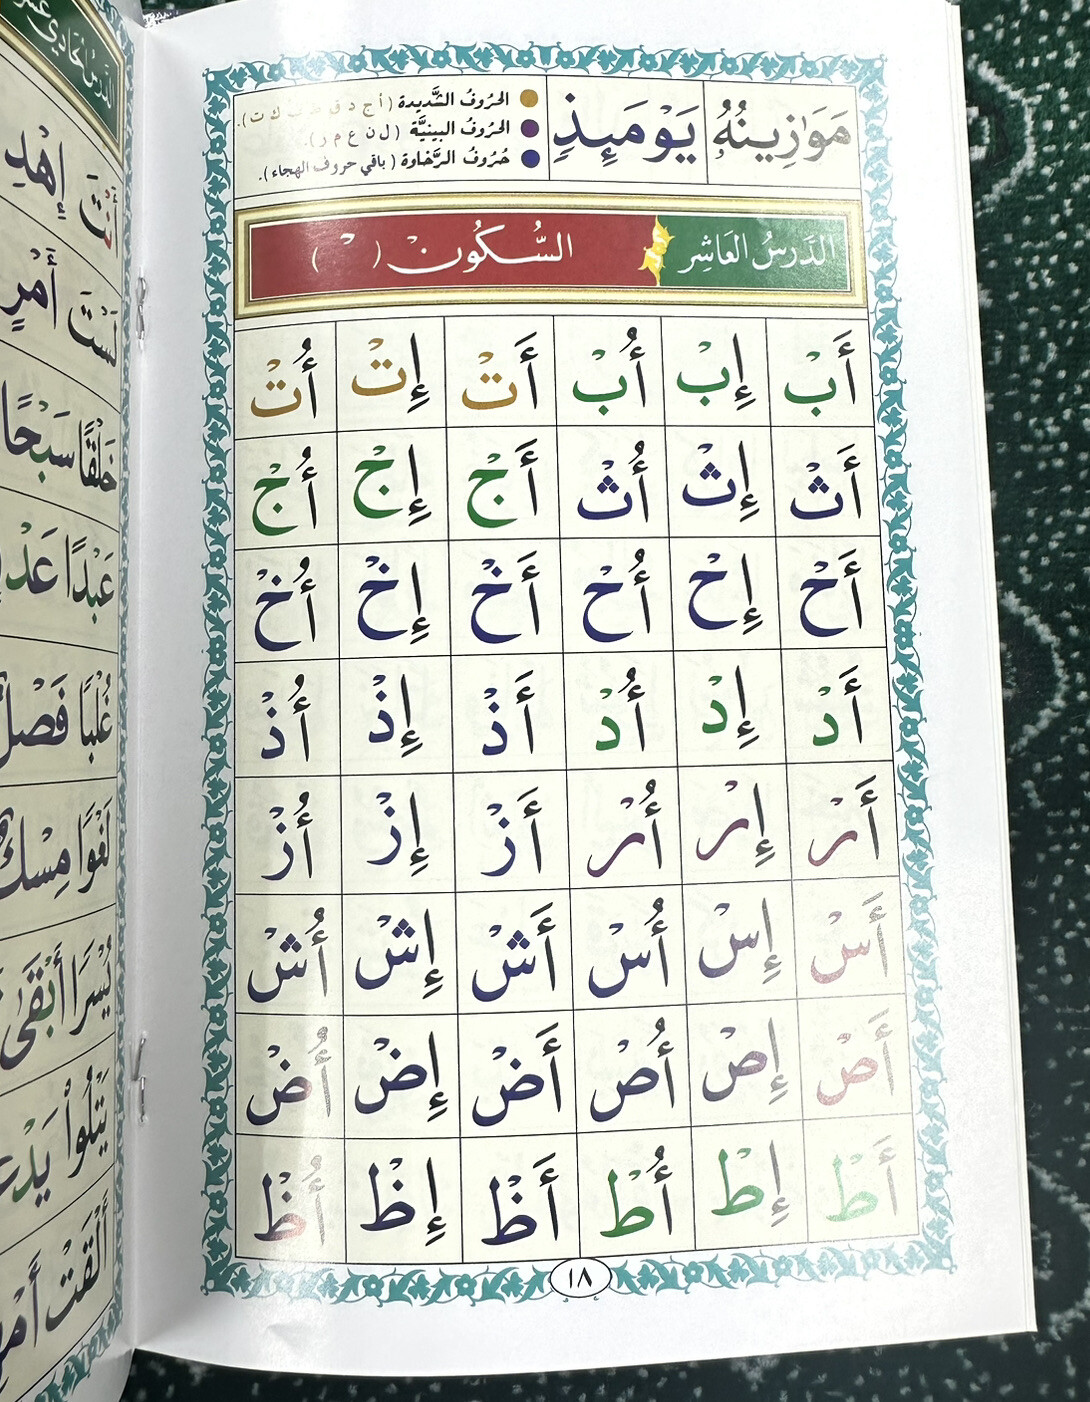 مَوَٰزِينُهُۥ يَوْمَئِذٍ
الحُروفُ الشَّديدة (أ ج د ق ط ب ك ت).
الحُروفُ البينيَّة (ل ن ع م ر).
حُروفُ الرَّخاوة (باقي حروف الهجاء).
الدَرسُ العَاشِر السُّكُونْ ( ْ )
أَبْ إِبْ أُبْ أَتْ إِتْ أُتْ
أَثْ إِثْ أُثْ أَجْ إِجْ أُجْ
أَحْ إِحْ أُحْ أَخْ إِخْ أُخْ
أَدْ إِدْ أُدْ أَذْ إِذْ أُذْ
أَرْ إِرْ أُرْ أَزْ إِزْ أُزْ
أَسْ إِسْ أُسْ أَشْ إِشْ أُشْ
أَصْ إِصْ أُصْ أَضْ إِضْ أُضْ
أَطْ إِطْ أُطْ أَظْ إِظْ أُظْ
١٨
الدَرسُ الحَادِي
أَنْتَ إِهْدِ
لَسْتَ أَمْرٍ
خَلْقًا سَبْحًا
عَبْدًا
غُلْبًا
لَغْوًا
يُسْرًا أَبْقَىٰ
يَتْلُوا۟
أَلْقَتْ